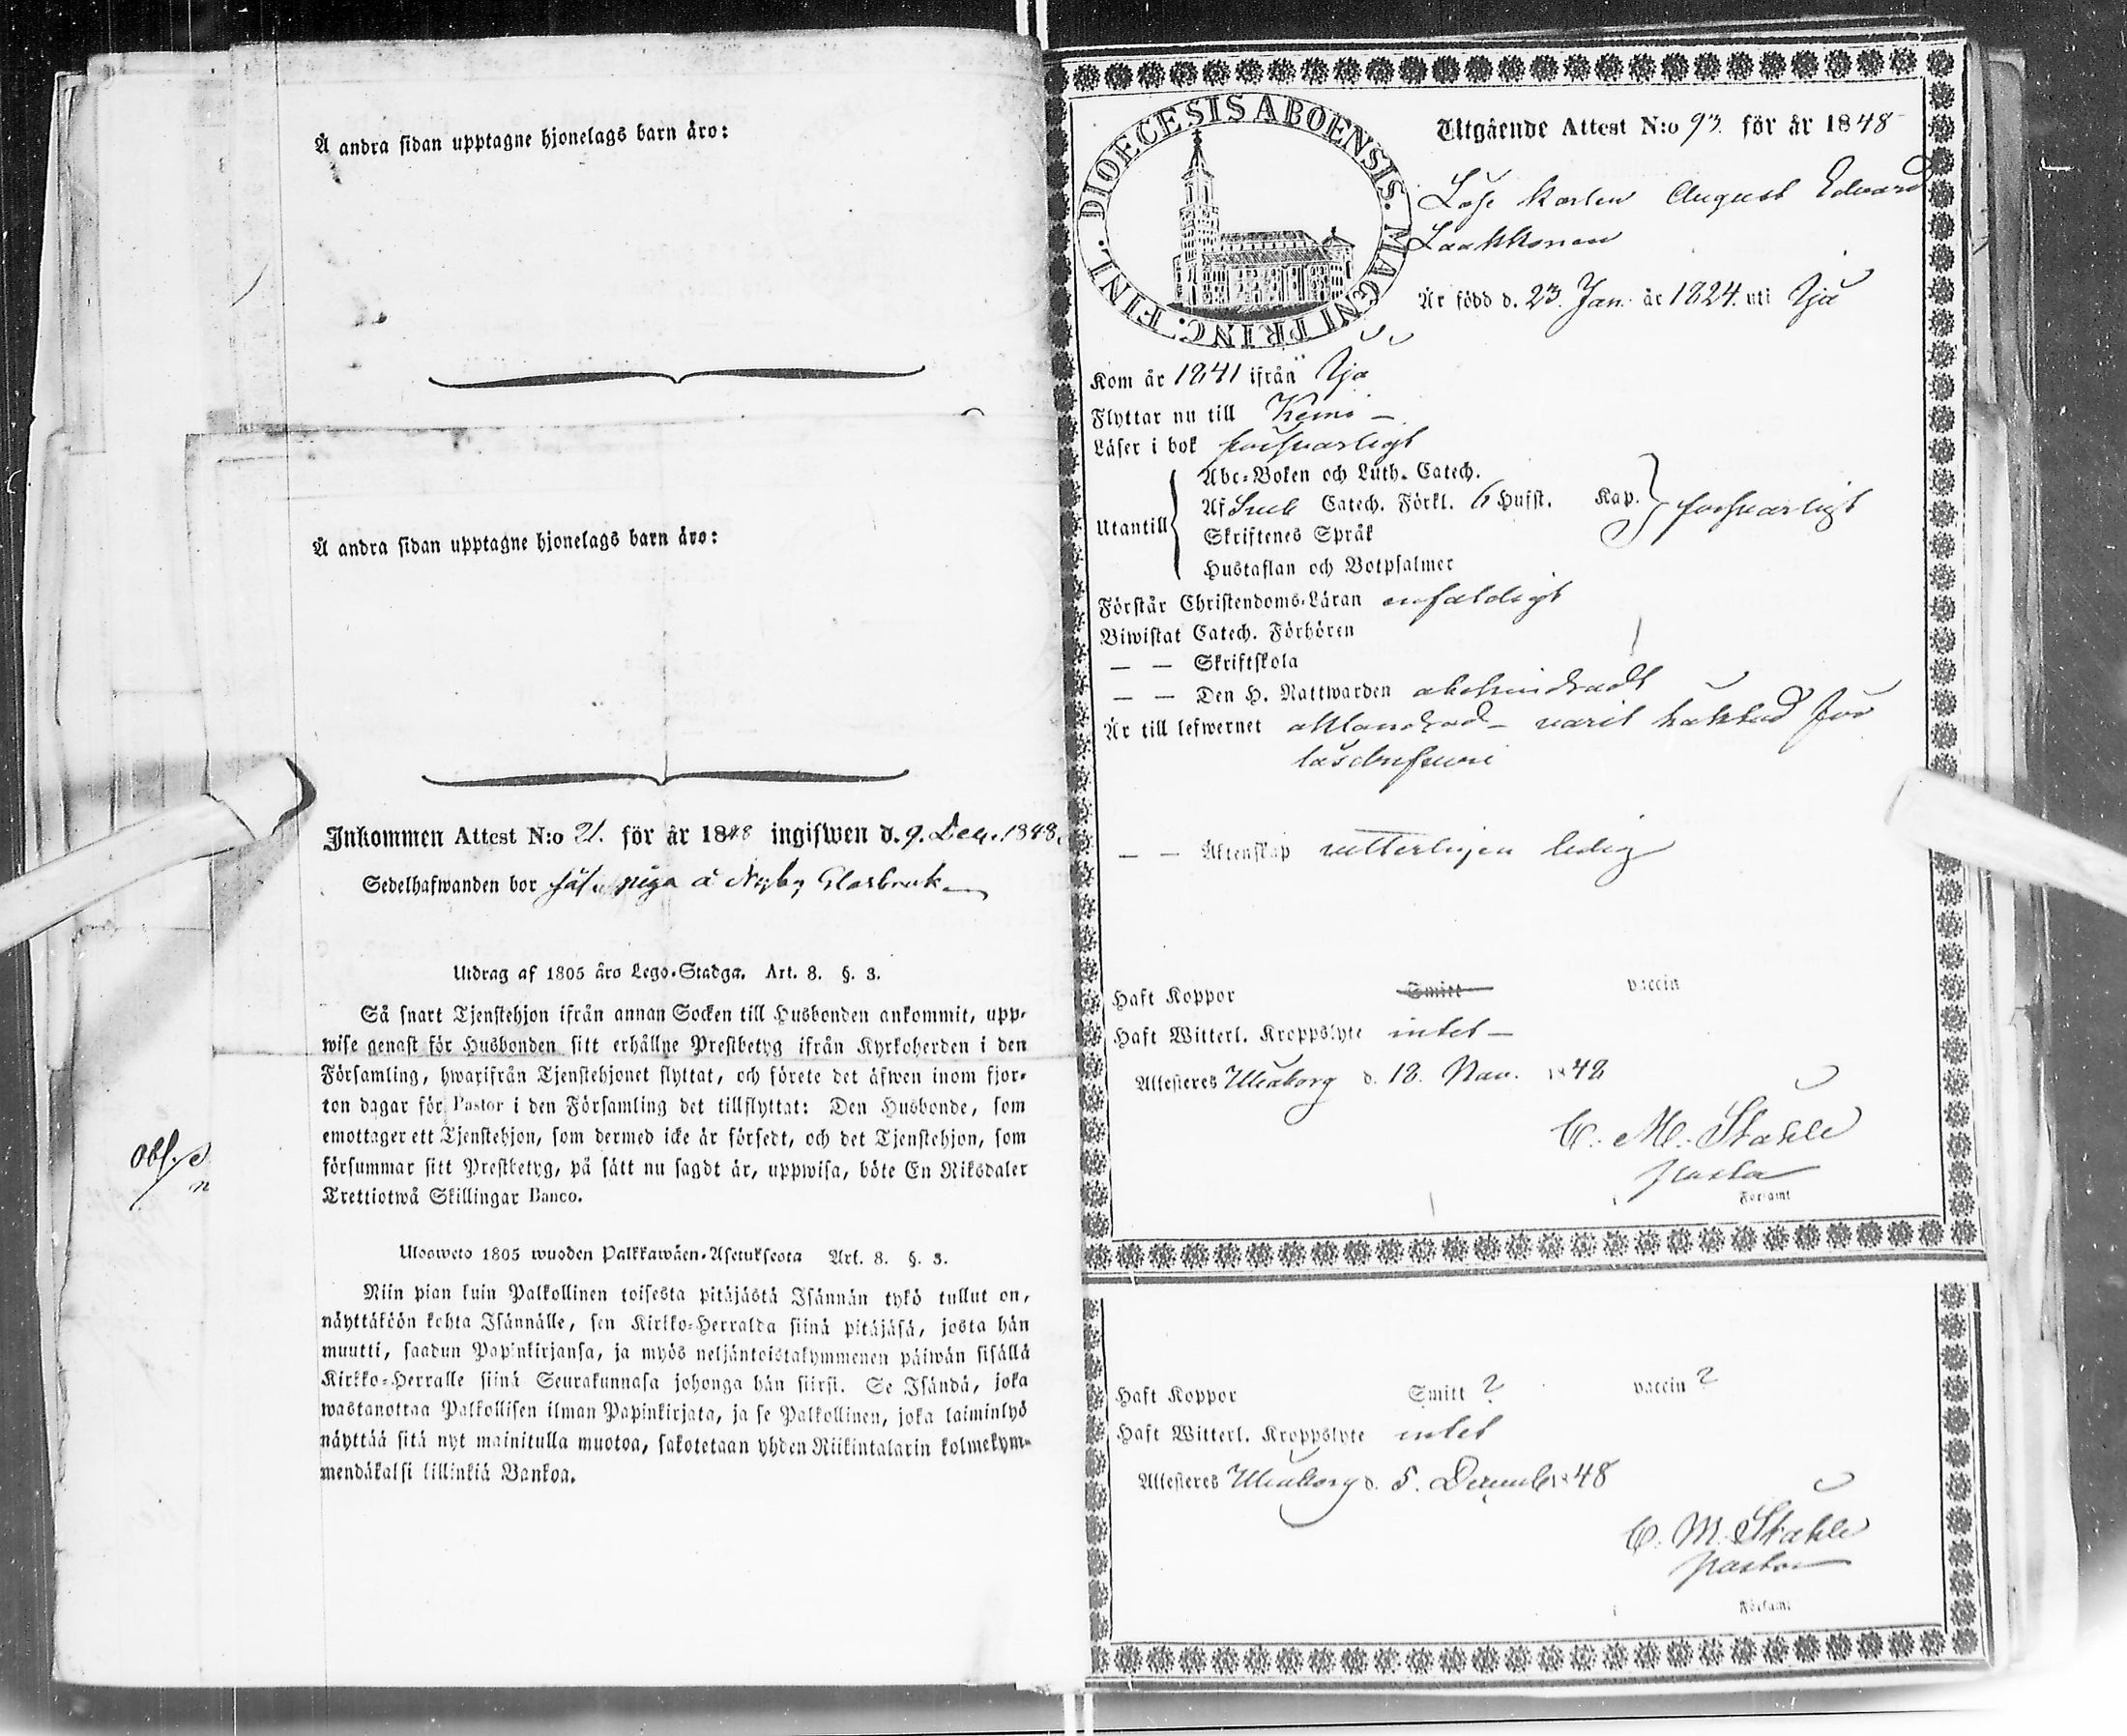 Å andra sidan upptagne hjonelags barn äro:
Å andra sidan upptagne hjonelags barn äro:
Inkommen Attest N:o 21. för år 1848 ingifwen d. 9. Dec. 1848.
Sedelhafwanden bor piga å Nyby Glasbruk
Utdrag af 1805 års Lego-Stadga. Art. 8. §. 3.
Så snart Tjenstehjon ifrån annan Socken till Husbonden ankommit, upp-
wise genast för Husbonden sitt erhållne Prestbetyg ifrån Kyrkoherden i den
Församling, hwarifrån Tjenstehjonet flyttat, och förete det äfwen inom fjor-
ton dagar för Pastor i den Församling det tillflyttat: Den Husbonde, som
emottager ett Tjenstehjon, som dermed icke är försedt, och det Tjenstehjon, som
försummar sitt Prestbetyg, på sätt nu sagdt är, uppwisa, böte En Riksdaler
Trettiotwå Skillingar Banco.
Ulosweto 1805 wuoden Palkkawäen-Asetuksesta Art. 8. §. 3.
Niin pian kuin Palkollinen toisesta pitäjästä Isännän tykö tullut on,
näyttäköön kohta Isännälle, sen Kirkko-Herralda siinä pitäjäsä, josta hän
muutti, saadun Papinkirjansa, ja myös neljäntoistakymmenen päiwän sisällä
Kirkko-Herralle siinä Seurakunnasa johonga hän siirsi. Se Isändä, joka
wastanottaa Palkollisen ilman Papinkirjata, ja se Palkollinen, joka laiminlyö
näyttää sitä nyt mainitulla muotoa, sakotetaan yhden Riikintalarin kolmekym-
mendäkaksi killinkiä Bankoa.
DIOECESIS ABOENSIS. MAGNI PRINC. FINL.
Utgående Attest N:o 93. för år 1848
Lösekarlen August Edvard
Laakkonen
Är född d. 23. Jan. år 1824. uti Ijå
Kom år 1841 ifrån Ijå
Flyttar nu till Kemi
Läser i bok försvarligt
Utantill
Abc-Boken och Luth. Catech.
Af Sveb Catech. Förkl. 6 Hufst. Kap. försvarligt
Skriftenes Språk
Hustaflan och Botpsalmer
Förstår Christendoms-Läran enfaldigt
Biwistat Catech. Förhören
— — Skriftskola
— — Den H. Nattwarden obehindradt
Är till lefwernet oklandrad varit häktad för
lösdrifveri
— — Äktenskap vetterligen ledig
Haft Koppor Smitt vaccin
Haft Witterl. Kroppslyte intet
Attesteres Uleåborg d. 18. Nov. 1848
C. M. Ståhle
Pastor
Församl
Haft Koppor Smitt ? vaccin ?
Haft Witterl. Kroppslyte intet
Attesteres Uleåborg d. 5. Decemb 1848
C. M. Ståhle
Pastor
Församl